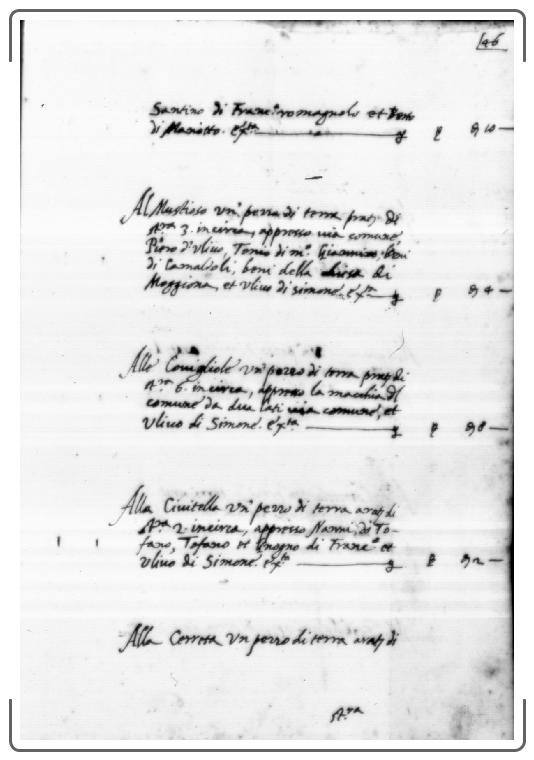 146
Santino di Franc.º romagnolo et
di Mariotto. &xta p 10
Al Mustioso vn pezzo di terra prat. di
st.ra 3. incirca, appresso uia comune,
Piero d'Vliuo, Tonio di m.º Giannino, beni
di Camaldoli, beni della chiesa di
Moggiona, et Vliuo di Simone. &xta p 4
Alle Couigliole vn pezzo di terra prat. di
st.ra 6. incirca, appresso la macchia del
comune da dua lati uia comune, et
Vliuo di Simone. &xta p 8
Alla Ciuitella vn pezzo di terra arat. di
st.ra 2 incirca, appresso Nanni di To-
fano, Tofano et di Franc.º et
Vliuo di Simone. &xta p 2
Alla Cerreta vn pezzo di terra arat. di
st.ra